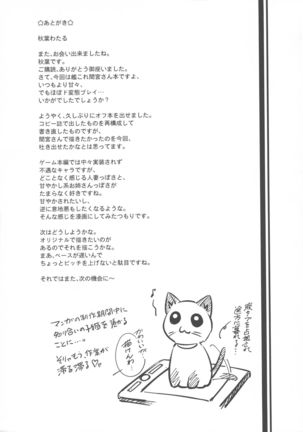 ☆あとがき☆
秋葉わたる
また、お会い出来ましたね。
秋葉です。
ご購読、ありがとう御座いました。
さて、今回は艦これ間宮さん本ですよ、
いつもより甘々、
でもほぼド変態プレイ…
いかがでしたでしょうか？
ようやく、久しぶりにオフ本を出せました。
コピー誌で出したものを再構成して
書き直したものですが、
間宮さんで描きたかったのを今回、
吐き出せたかなとは思ってます。
ゲーム本編では中々実装されず
不遇なキャラですが、
どことなく感じる人妻っぽさと、
甘やかし系お姉さんっぽさが
たまらなく好きですね。
甘やかされたいし、
逆に意地悪もしたくなるような、
そんな感じを漫画にしてみたつもりです。
次はどうしようかな。
オリジナルで描きたいのが
あるのでそれを描こうかな。
まあ、ペースが遅いんで
ちょっとピッチを上げないと駄目ですね。
それではまた、次の機会に～
マンガの制作期間中に
知り合いの子猫を預かる
ことに…。
そりゃもう、作業が
滞る滞る♡。
かわいい